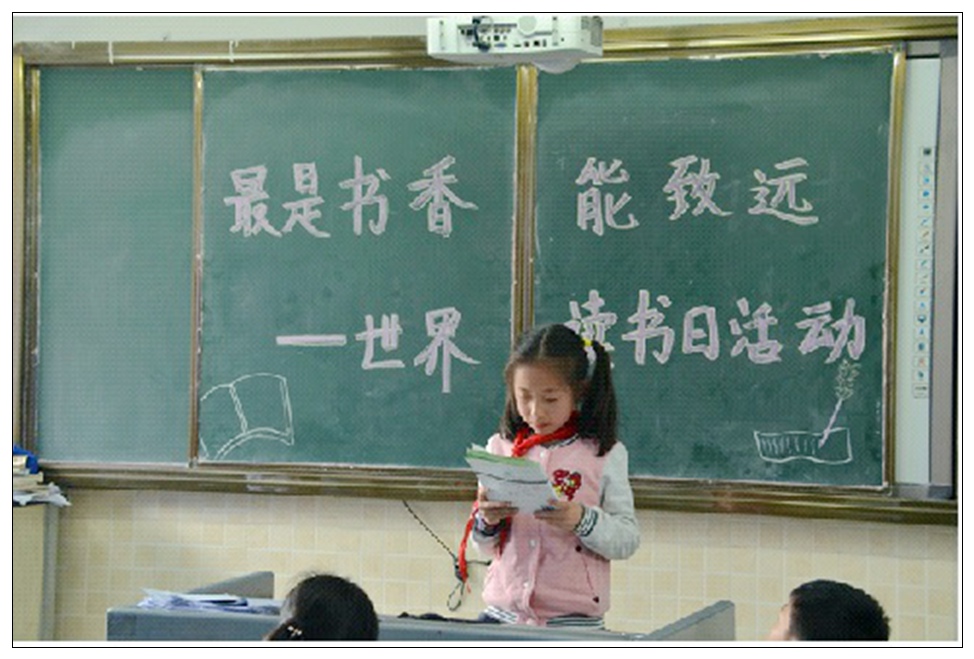 最是书香 能致远
—世界读书日活动